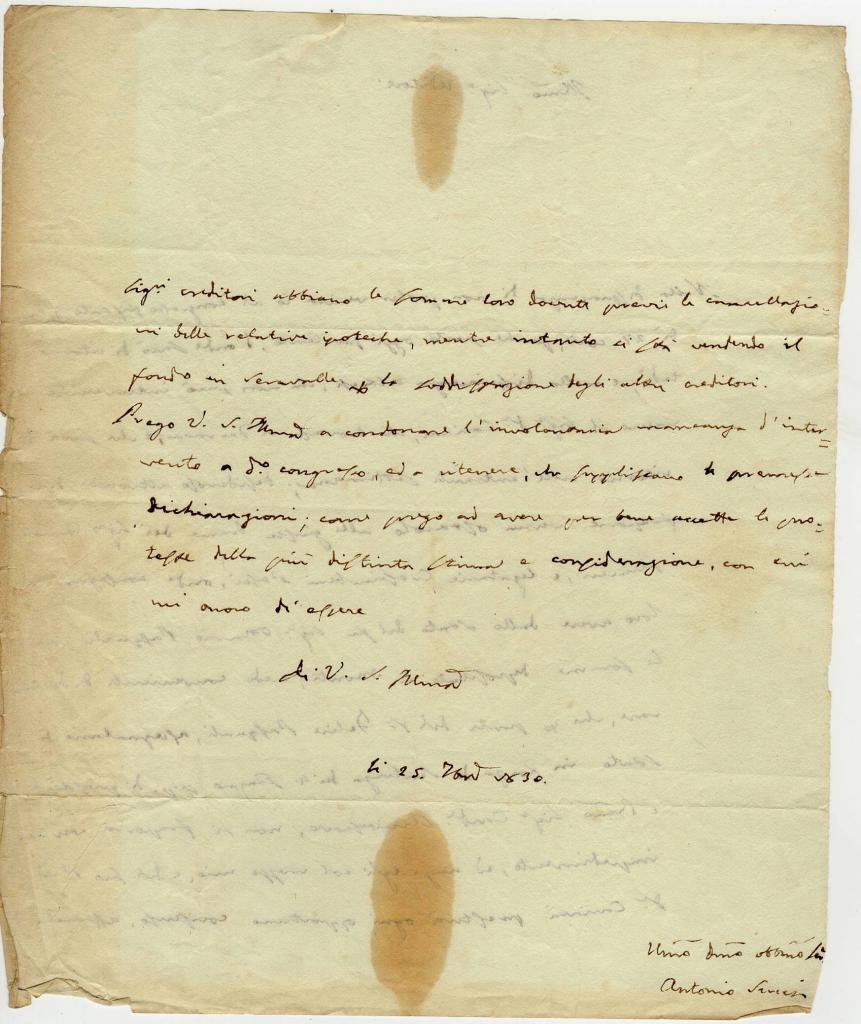 Sig.ri creditori abbiano le somme loro dovute previe le cancellazio=
ni delle relative ipoteche, mentre intanto si sta vendendo il
fondo in Seravalle per la soddisfazione degli altri creditori.
Prego V. S. Illma a condonare l'involontaria mancanza d'inter=
vento a do. congresso, ed a ritenere, che suppliscano le premesse
dichiarazioni; come prego ad avere per bene accette le pro=
teste della più distinta stima e considerazione, con cui
mi onoro di essere
di V. S. Illma
li 25. 1830.
Umo Dmo obbmo
Antonio